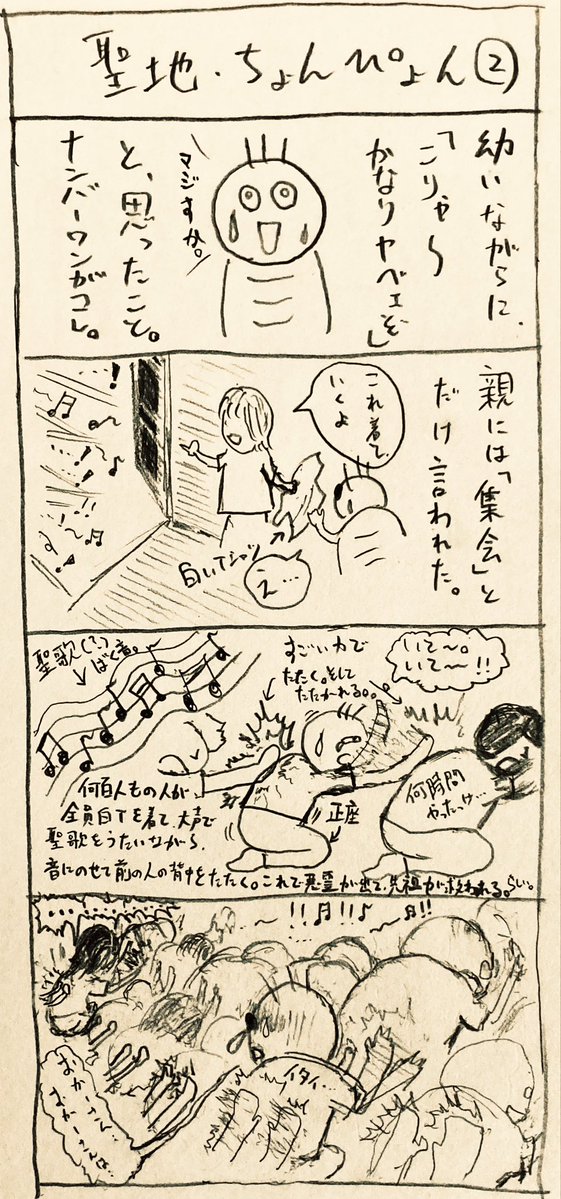 聖地・ちょんぴょん②
幼いながらに、
「こりゃ〜
かなりヤベェぞ」
マジすか。
と、思ったこと。
ナンバーワンがコレ。
親には「集会」と
だけ言われた。
これ着て
いくよ
白いTシャツ
え…
聖歌(?)
ばく音。
すごい力で
たたく。そして
たたかれる。
いて〜。
いて〜!!
何時間
やったっけ…
正座
何百人もの人が、
全員白Tを着て、大声で
聖歌をうたいながら、
音にのせて前の人の背中をたたく。これで悪霊が出て、先祖が救われる。らしい。
イタイ…
おかーさん…